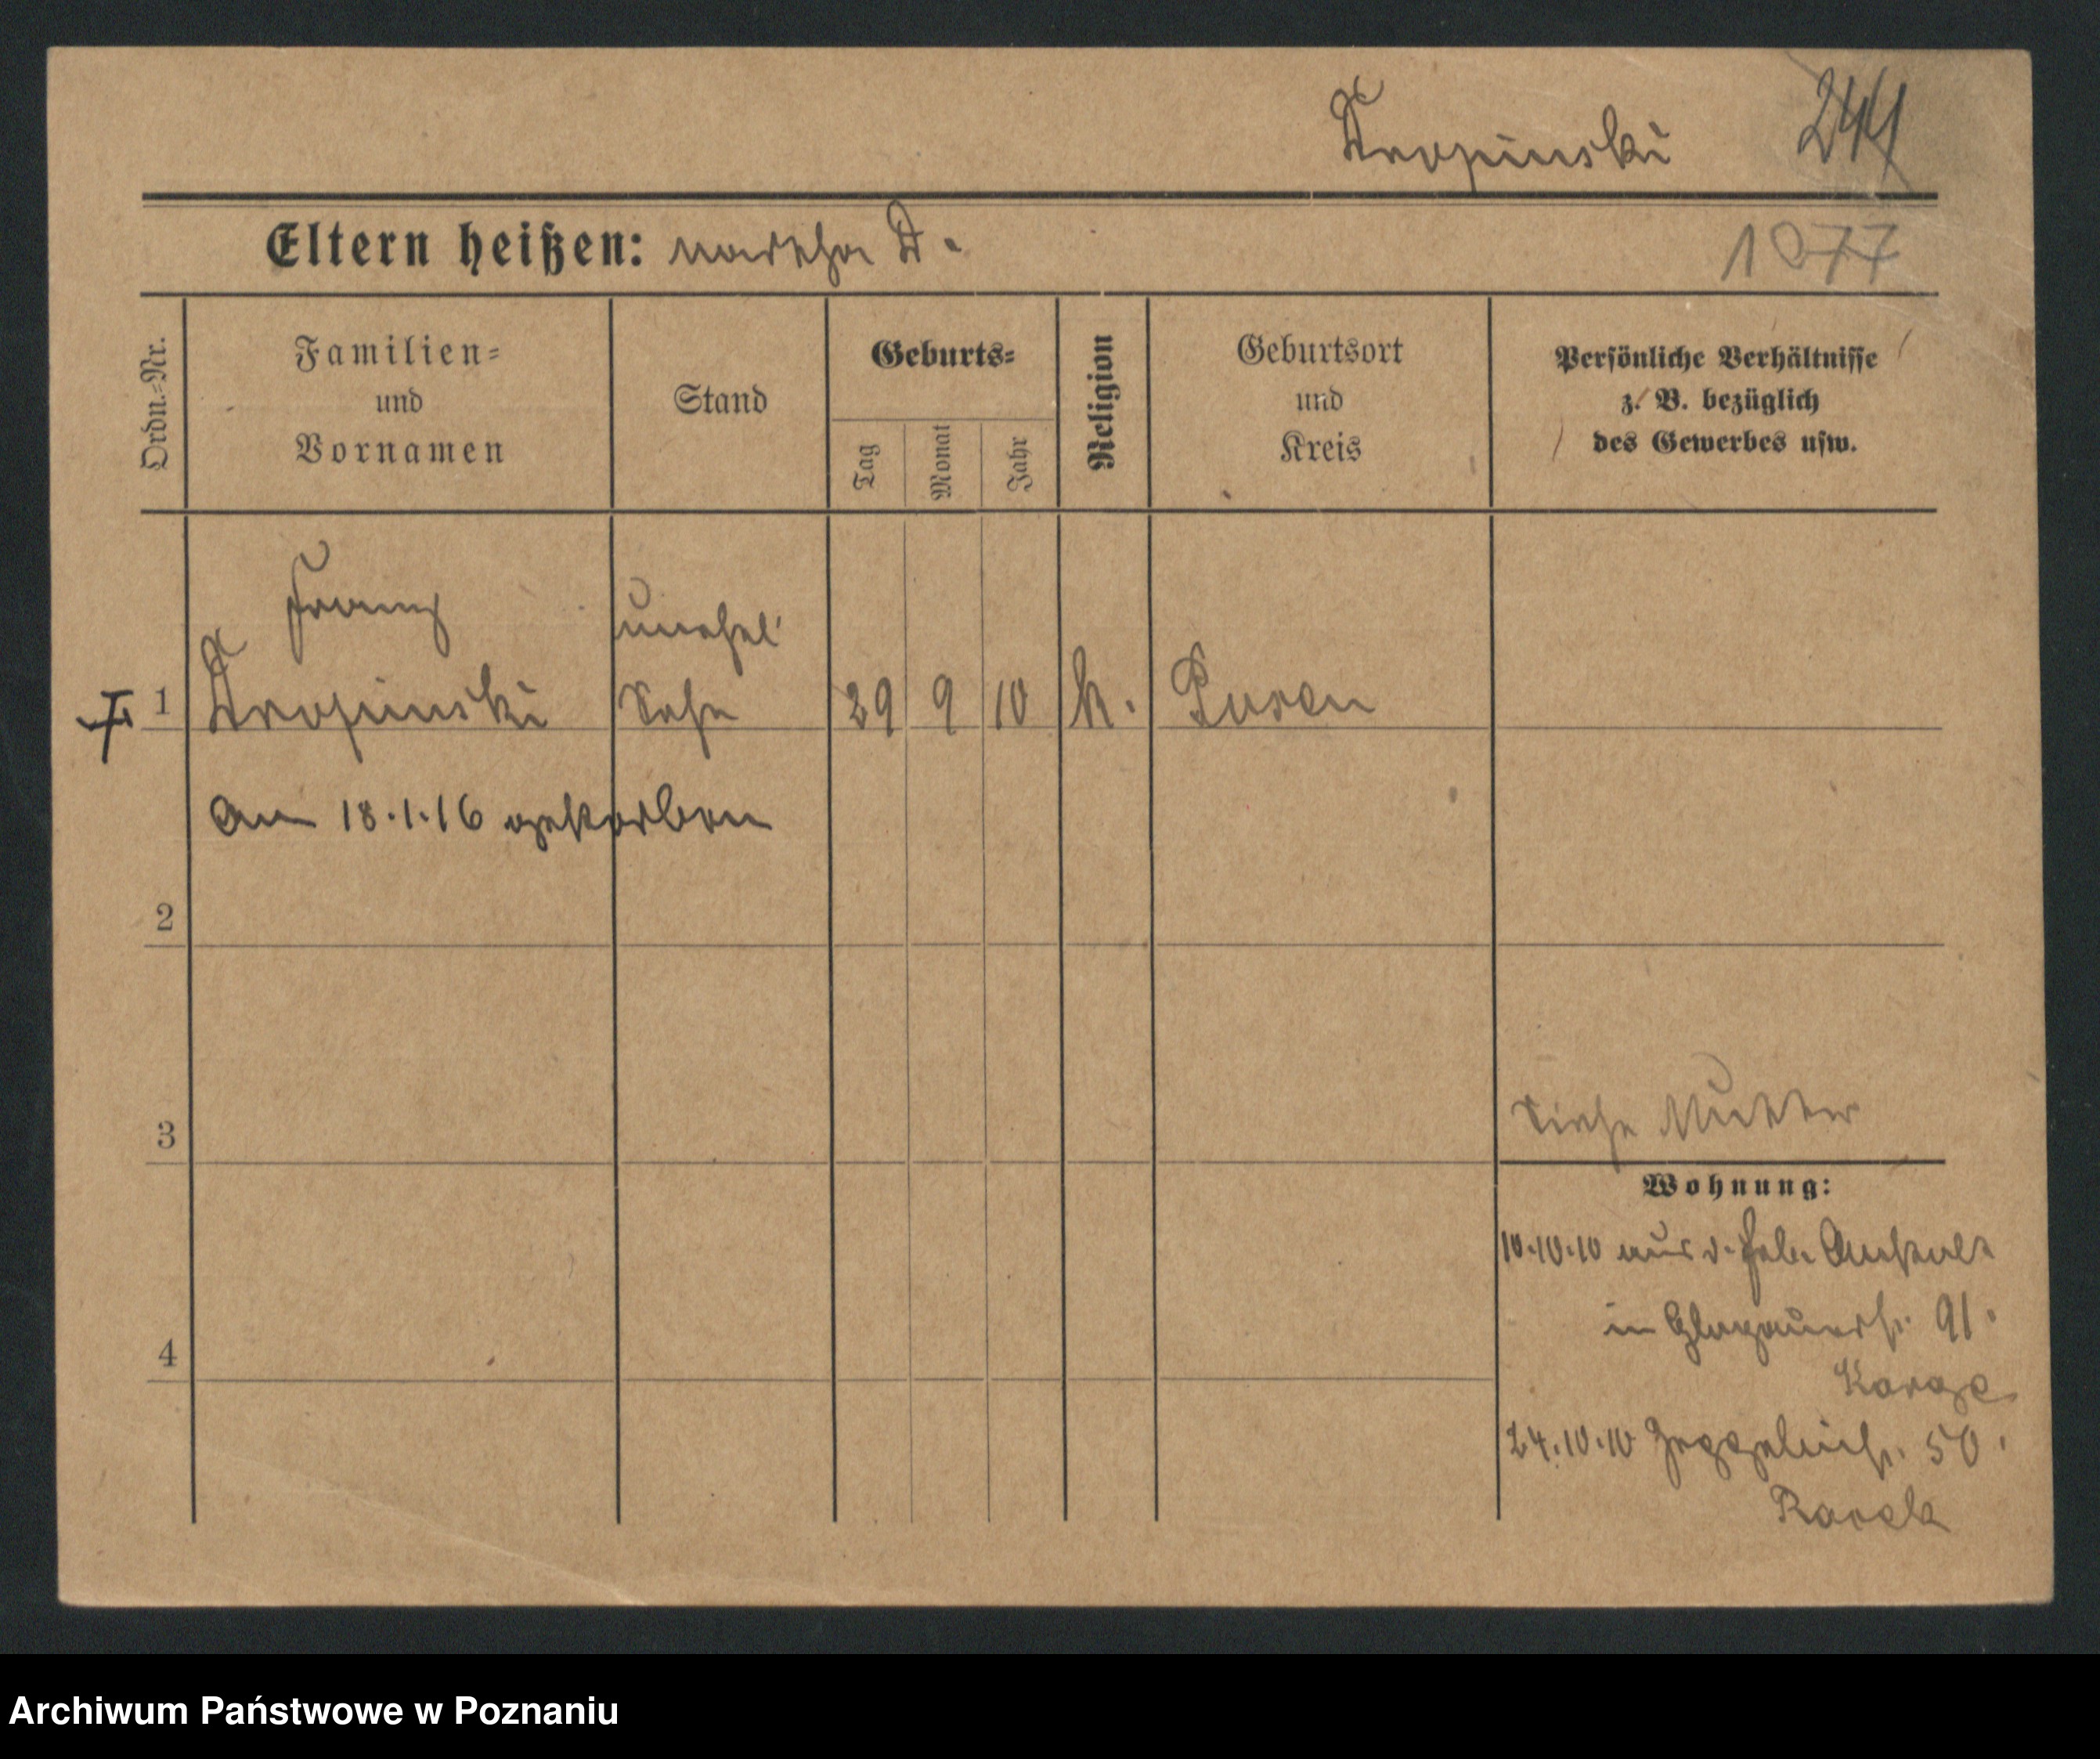 Kropinski 244
Eltern heißen: Martha K.
1077
Ordn.-Nr.
Familien-
und
Vornamen
Stand
Geburts-
Tag
Monat
Jahr
Religion
Geburtsort
und
Kreis
Persönliche Verhältnisse
z. B. bezüglich
des Gewerbes usw.
Franz unehel
1 Kropinski Sohn 29 9 10 k. Posen
am 18.1.16 gestorben
2
3
siehe Mutter
Wohnung:
10.10.10 aus d. Heb. Anstalt
in Glogauerstr. 91.
4
24.10.10 50.
Archiwum Państwowe w Poznaniu